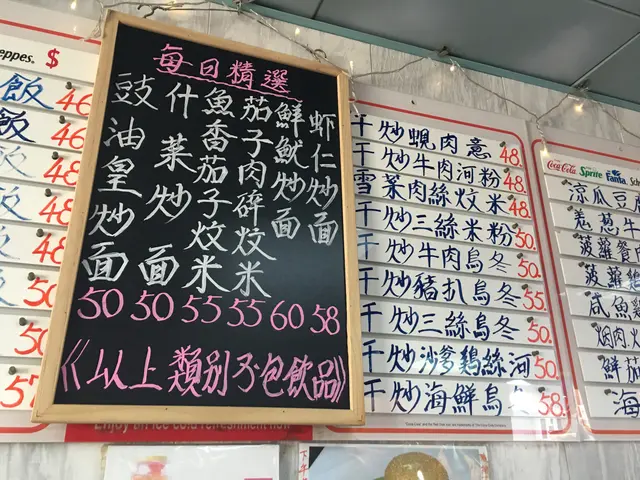 eppes. $
飯 46
飯 46
48
48
48
50
50
57
每日精選
豉油皇炒面 50
什菜炒面 50
魚香茄子炆米 55
茄子肉碎炆米 55
鮮魷炒面 60
虾仁炒面 58
《以上類別不包飲品》
Enjoy an ice cold refreshment now
干炒蜆肉意 48.
干炒牛肉河粉 48.
雪菜肉絲炆米 48.
干炒三絲米粉 50.
干炒牛肉烏冬 50.
干炒豬扒烏冬 55
干炒三絲烏冬 50.
干炒沙爹鷄絲河 50.
干炒海鮮烏冬 58.
Coca-Cola Sprite Fanta Sch
凉瓜豆
葱牛
菠蘿餐肉
菠蘿
咸魚
烟肉
鮮茄
海